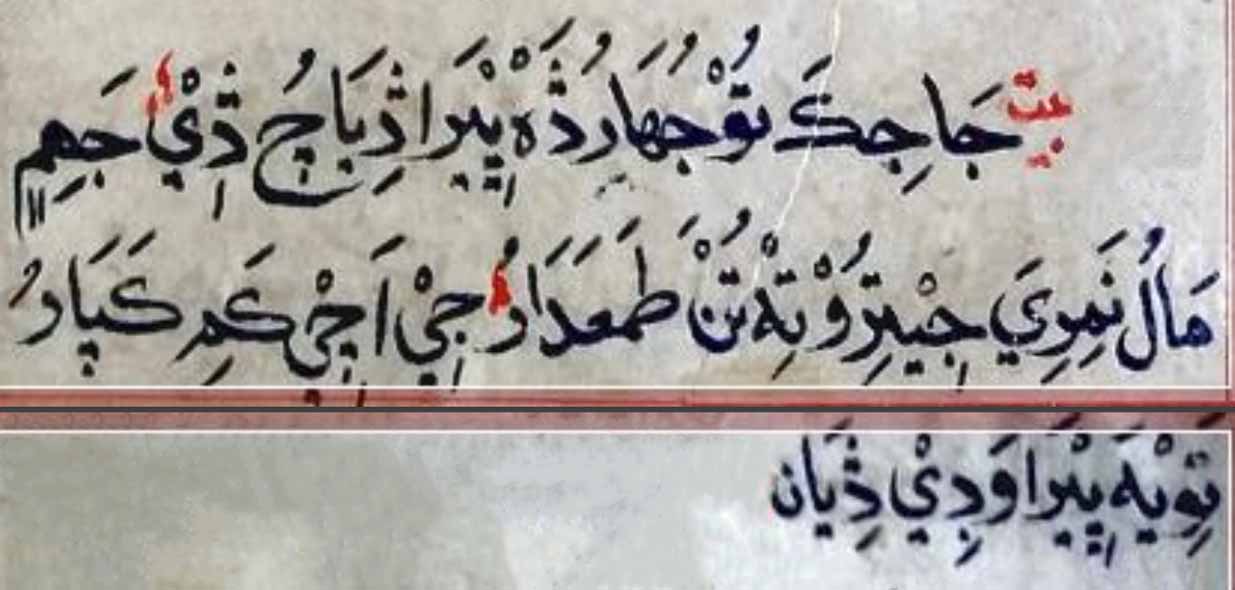 بيت جَاجِڪَ تُوْجُهَارُ ذَهْ پَيْرَا ذِبَاجُ ذِيْ جَهِمِ
مَالُ نَمِرِيَ جِيْتِرُوْ تِهْ تُنْ طَمَعَدَارُ جِيْ اَچِيْ ڪَمِ ڪَپَارُ
تِوِيْهَ پَيْرَا وَدِيْ ذِيَان